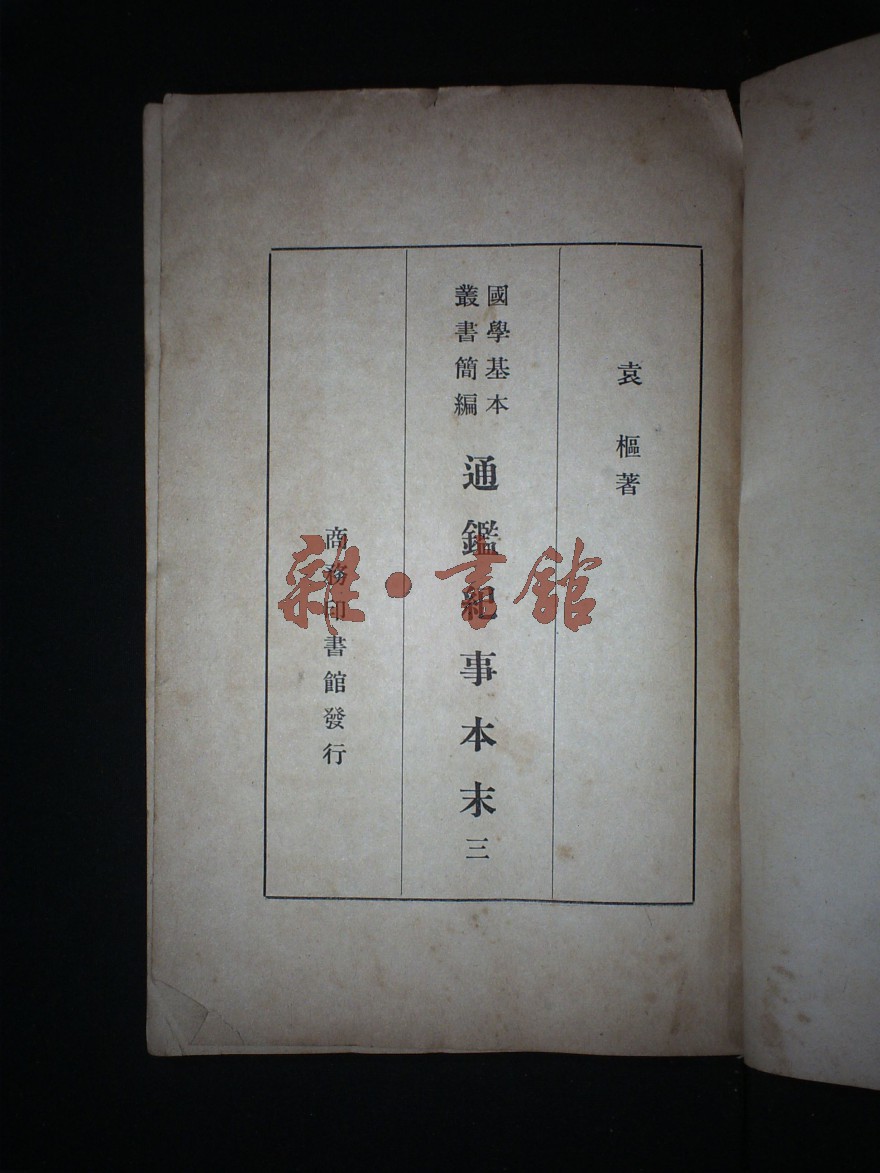 袁樞著
國學基本
叢書簡編
通鑑紀事本末三
商務印書館發行
雜·書館